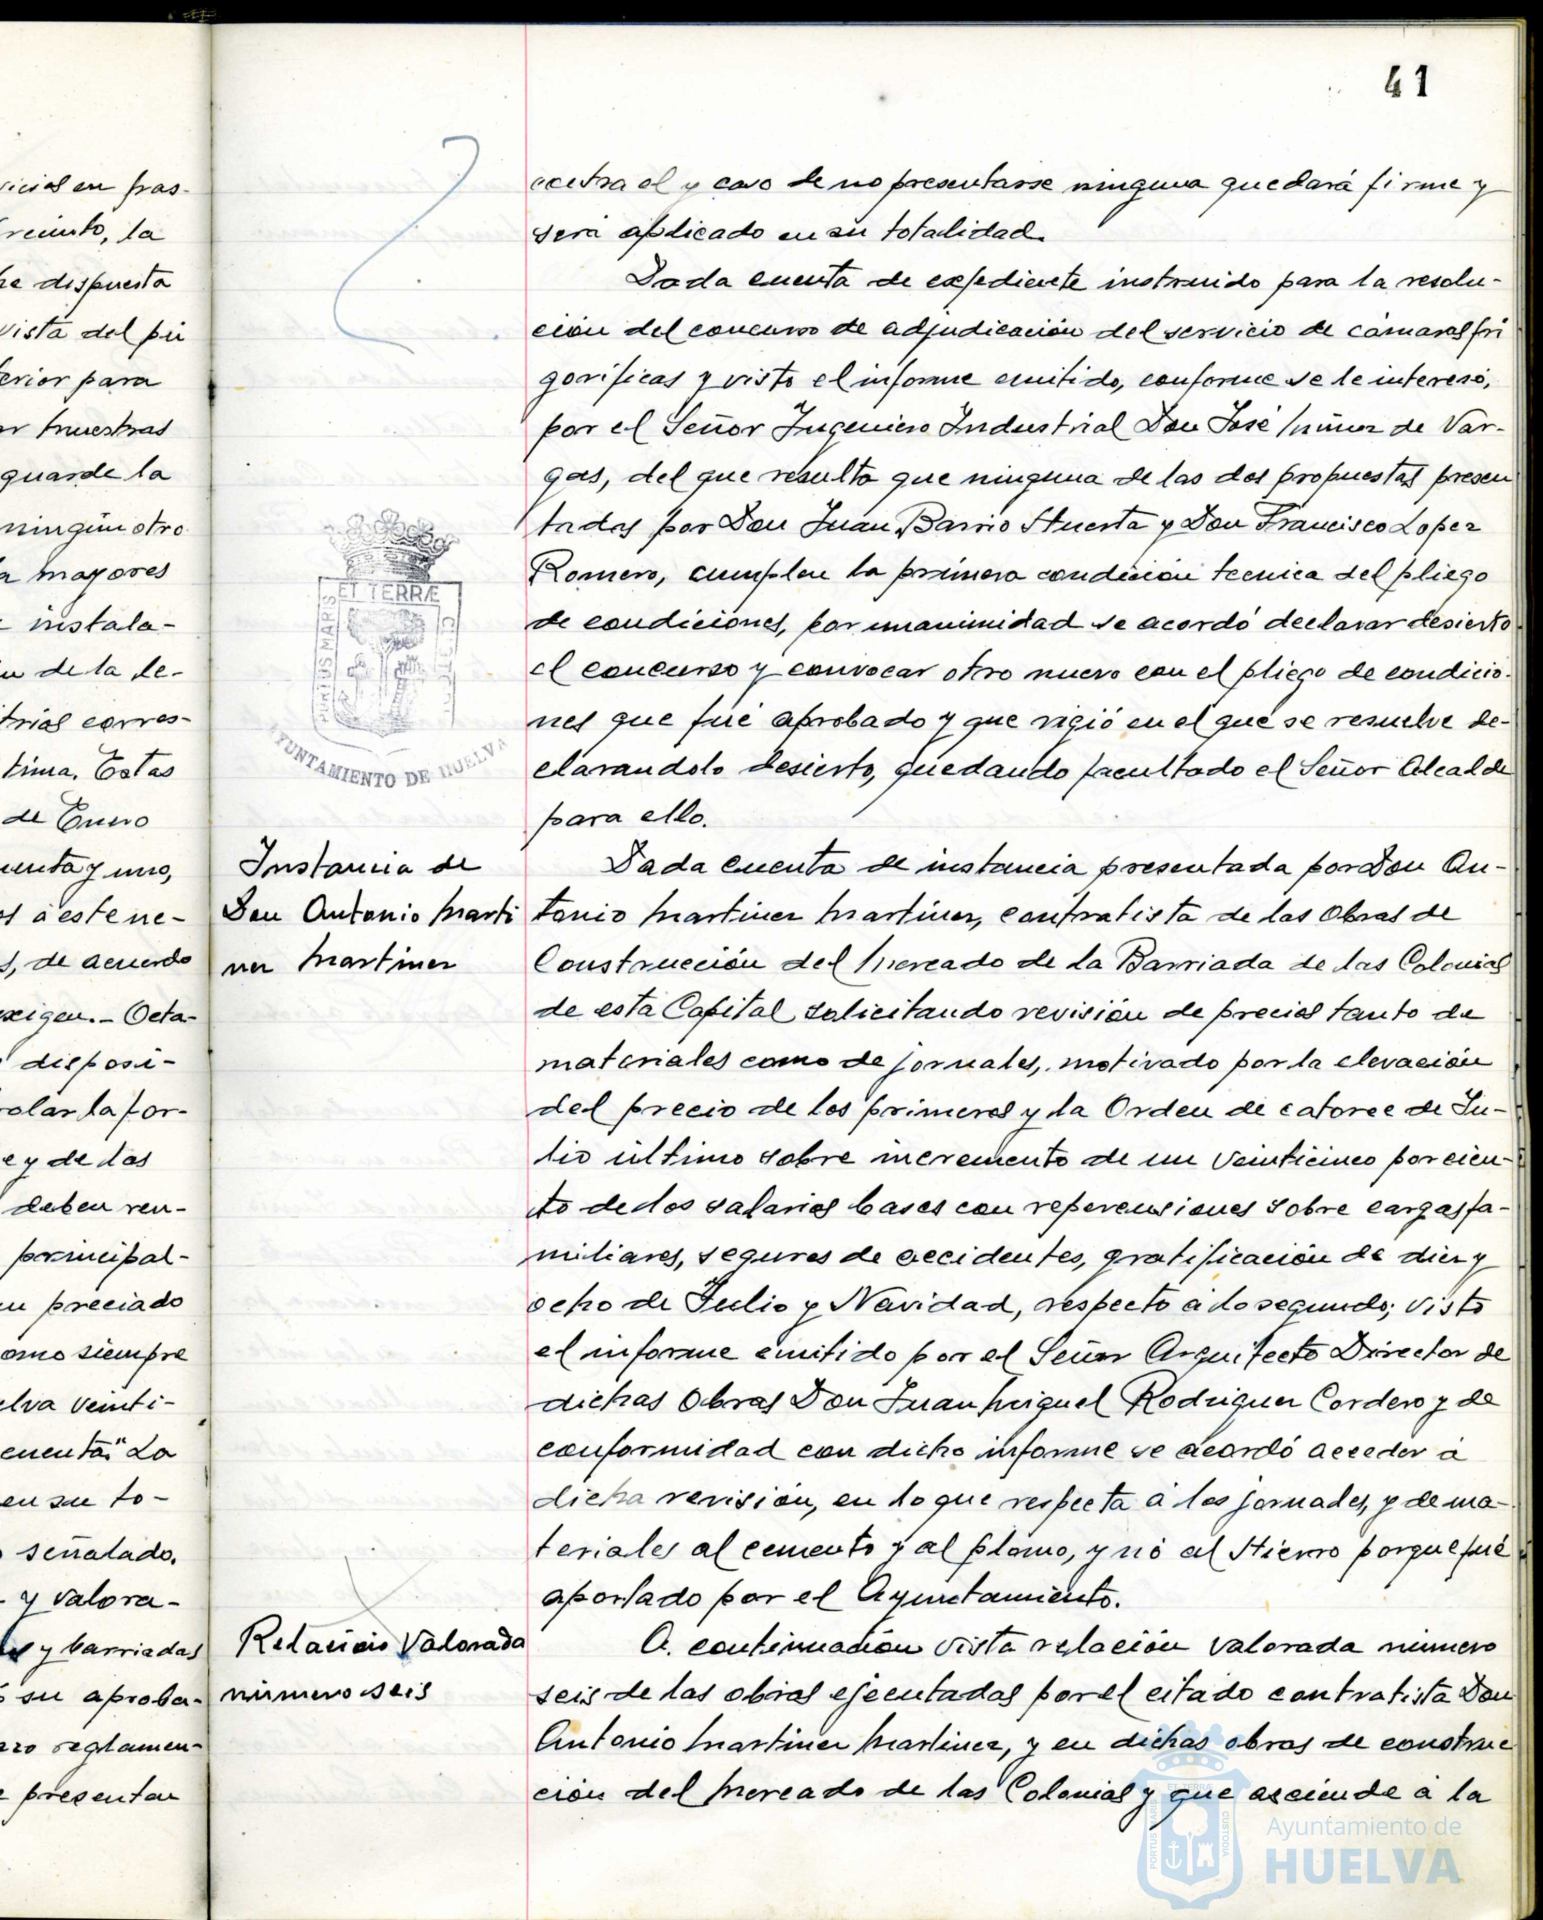 41
vicios en pras-
recinto, la
he dispuesta
vista del pú
terior para
muestras
guarde la
ningún otro
mayores
instala-
de la le-
trias corres-
tima. Estas
de Enero
cuenta y uno,
os á este ne-
de acuerdo
exigen.- Octa-
disposi-
rolar la for-
e y de los
deben ren-
principal-
preciado
como siempre
elva veinti-
cuenta" La
en su to-
señalado.
y valora-
y barriadas
su aproba-
azo reglamen-
presentan
contra el y caso de no presentarse ninguna quedará firme y
será aplicado en su totalidad.
Dada cuenta de expediente instruido para la resolu-
ción del concurso de adjudicación del servicio de cámaras fri
gorificas y visto el informe emitido, conforme se le interesó,
por el Señor Ingeniero Industrial Don José Núñez de Var-
gas, del que resulta que ninguna de las dos propuestas presen
tadas por Don Juan Barrio Huerta y Don Francisco Lopez
Romero, cumplen la primera condición tecnica del pliego
de condiciones, por unanimidad se acordó declarar desierto
el concurso y convocar otro nuevo con el pliego de condicio-
nes que fué aprobado y que rigió en el que se resuelve de-
clarandolo desierto, quedando facultado el Señor Alcalde
para ello.
PORTUS MARIS ET TERRÆ CUSTODIA
AYUNTAMIENTO DE HUELVA
Instancia de
Don Antonio Marti
nez Martinez
Dada cuenta de instancia presentada por Don An-
tonio Martinez Martinez, contratista de las Obras de
Construcción del Mercado de la Barriada de las Colonias
de esta Capital solicitando revisión de precios tanto de
materiales como de jornales, motivado por la elevación
del precio de los primeros y la Orden de catorce de Ju-
lio último sobre incremento de un veinticinco por cien-
to de los salarios bases con repercusiones sobre cargas fa-
miliares, seguros de accidentes, gratificación de diez y
ocho de Julio y Navidad, respecto á lo segundo; visto
el informe emitido por el Señor Arquitecto Director de
dichas Obras Don Juan Miguel Rodriguez Cordero y de
conformidad con dicho informe se acordó acceder á
dicha revisión, en lo que respecta á los jornales, y de ma-
teriales al cemento y al plomo, y nó al Hierro porque fué
aportado por el Ayuntamiento.
Relación Valorada
número seis
A continuación vista relación valorada número
seis de las obras ejecutadas por el citado contratista Don
Antonio Martinez Martinez, y en dichas obras de construc
ción del Mercado de las Colonias y que asciende á la
PORTUS MARIS ET TERRÆ CUSTODIA
Ayuntamiento de
HUELVA